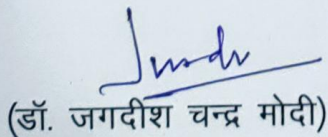 (डॉ. जगदीश चन्द्र मोदी)